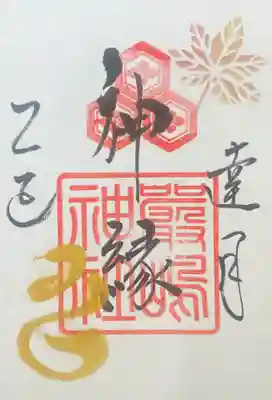 月
神縁
嚴島神社
乙巳